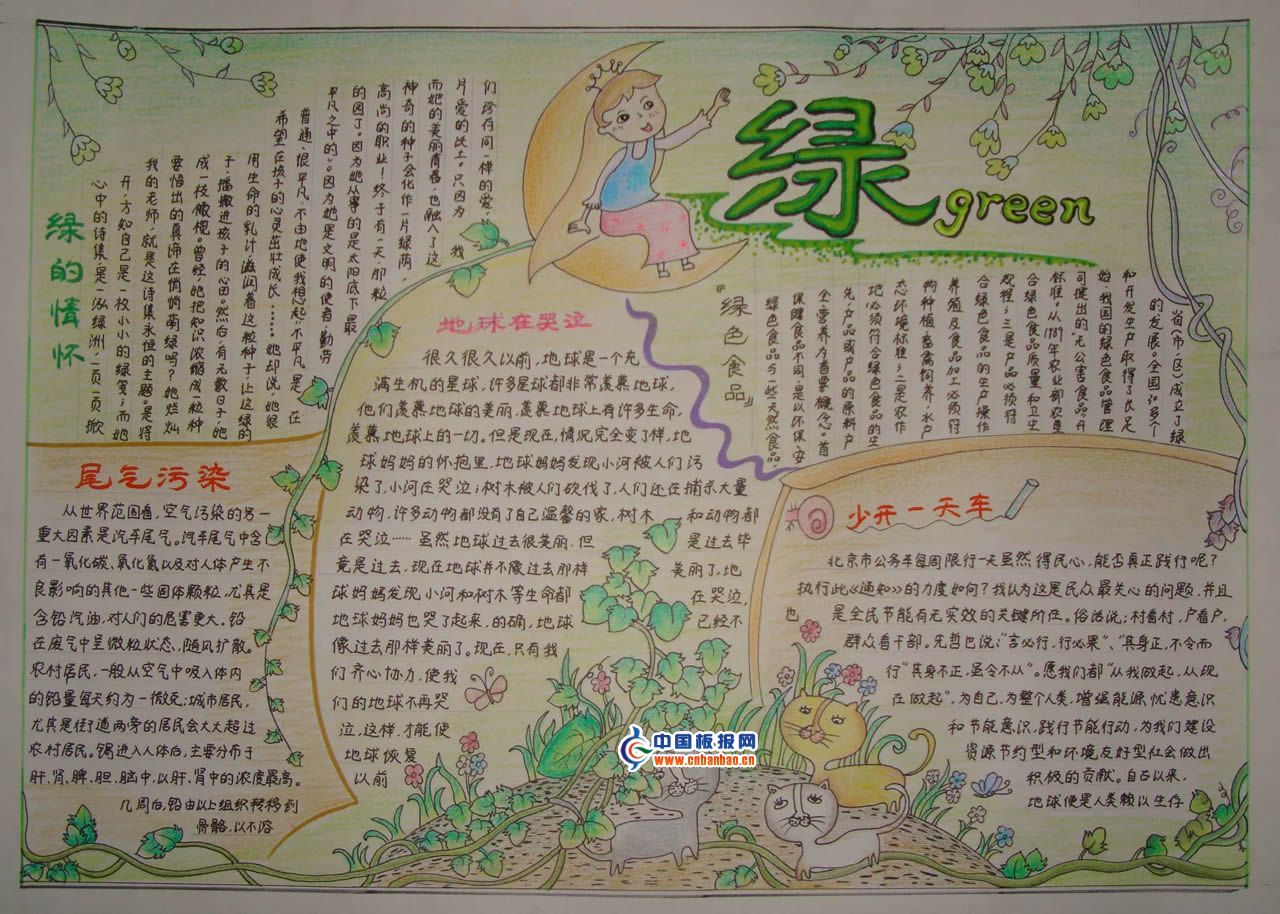 绿
green
绿的情怀
心中的诗集,是一泓绿洲,一页一页掀
开,方知自己是一枚小小的绿笺;而她
我的老师,就是这诗集永恒的主题。是将
要悟出的真谛在悄悄萌绿吗?她灿灿
成一枝橄榄。曾经,她把知识浓缩成一粒种
子,播撒进孩子的心田。然后,有无数日子,她
用生命的乳汁,滋润着这粒种子,让这绿的
希望在孩子的心灵茁壮成长……她却说,她很
普通,很平凡,不由地使我想起,不平凡是在
平凡之中的。因为她是文明的使者,勤劳
的园丁。因为她从事的是太阳底下最
高尚的职业!终于有一天,那粒
神奇的种子会化作一片绿荫,
而她的美丽青春,也融入了这
片爱的沃土。只因为 我
们珍存同一样的爱,
地球在哭泣
很久很久以前,地球是一个充
满生机的星球,许多星球都非常羡慕地球,
他们羡慕地球的美丽,羡慕地球上有许多生命,
羡慕地球上的一切。但是现在,情况完全变了样,地
球妈妈的怀抱里,地球妈妈发现小河被人们污
染了,小河在哭泣;树木被人们砍伐了,人们还在捕杀大量
动物,许多动物都没有了自己温馨的家,树木 和动物都
在哭泣……虽然地球过去很美丽,但 是过去毕
竟是过去,现在地球并不像过去那样 美丽了,地
球妈妈发现小河和树木等生命都 在哭泣,
地球妈妈也哭了起来,的确,地球 已经不
像过去那样美丽了。现在,只有我
们齐心协力,使我
们的地球不再哭
泣,这样,才能使
地球恢复
以前
『绿色食品』
绿色食品与一些天然食品,
保健食品不同,是以环保、安
全、营养为首要概念。首
先,产品或产品的原料产
地必须符合绿色食品的生
态环境标准;二是农作
物种植,畜禽饲养,水产
养殖及食品加工必须符
合绿色食品的生产操作
规程;三是产品必须符
合绿色食品质量和卫生
标准。从1989年农业部农垦
司提出的“无公害食品”开
始,我国的绿色食品管理
和开发生产取得了长足
的发展。全国30多个
省(市、区)成立了绿
尾气污染
从世界范围看,空气污染的另一
重大因素是汽车尾气。汽车尾气中含
有一氧化碳、氧化氮以及对人体产生不
良影响的其他一些固体颗粒,尤其是
含铅汽油,对人们的危害更大。铅
在废气中呈微粒状态,随风扩散。
农村居民,一般从空气中吸入体内
的铅量每天约为一微克;城市居民,
尤其是街道两旁的居民会大大超过
农村居民。铅进入人体后,主要分布于
肝、肾、脾、胆、脑中,以肝、肾中的浓度最高。
几周后,铅由以上组织转移到
骨骼,以不溶
少开一天车
北京市公务车每周限行一天虽然得民心,能否真正践行呢?
执行此《通知》的力度如何?我认为这是民众最关心的问题,并且
也 是全民节能有无实效的关键所在。俗话说;村看村,户看户,
群众看干部。先哲也说;“言必行,行必果”、“其身正,不令而
行”“其身不正,虽令不从”。愿我们都“从我做起,从现
在做起”,为自己,为整个人类,增强能源忧患意识
和节能意识,践行节能行动,为我们建设
资源节约型和环境友好型社会做出
积极的贡献。自古以来,
地球便是人类赖以生存
中国板报网
www.cnbanbao.cn